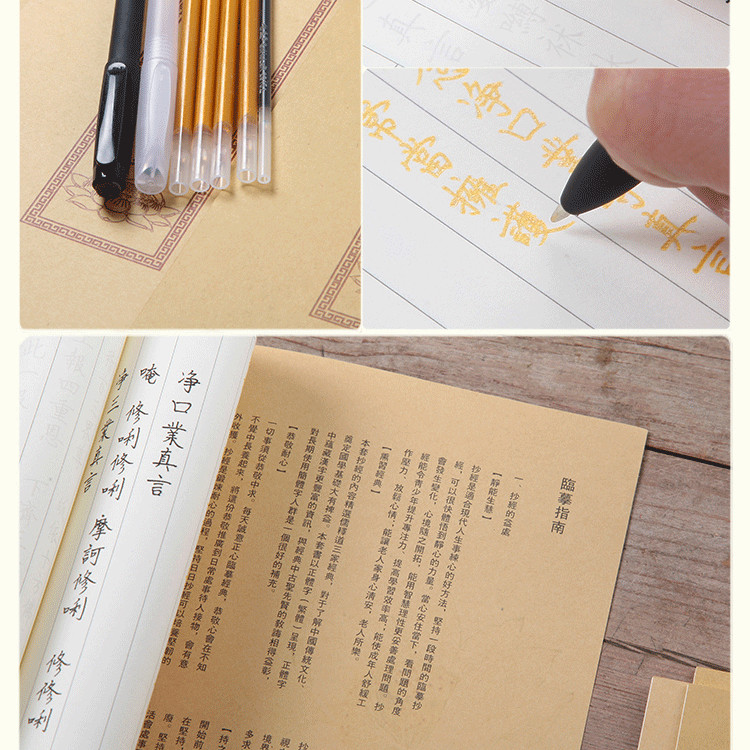 真言
淨口業真言
常當擁護
淨口業真言
唵 修唎修唎 摩訶修唎 修修唎
淨三業真言
報四重恩
臨摹指南
一、抄經的益處
【靜能生慧】
抄經是適合現代人生事練心的好方法，堅持一段時間的臨摹抄
經，可以很快體悟到靜心的力量。當心安住當下，看問題的角度
會發生變化，心境隨之開拓，能用智慧理性更妥善處理問題。抄
經能令青少年提升專注力、提高學習效率高；能使成年人舒緩工
作壓力、放鬆心情；能讓老人家身心清安，老人所樂。
【熏習經典】
本套抄經的內容精選儒釋道三家經典，對于了解中國傳統文化、
奠定國學基礎大有裨益。本套書以正體字（繁體）呈現，正體字
中蘊藏漢字更豐富的資訊，與經典中古聖先賢的教誨相得益彰，
對長期使用簡體字人群是一個很好的補充。
【恭敬耐心】
一切事須從恭敬中求，每天誠意正心臨摹經典，恭敬心會在不知
不覺中長養起來，將這份恭敬推廣到日常處事待人接物，會有意
外收穫。抄經是鍛煉耐心的過程，堅持日日抄經可以培養堅韌的